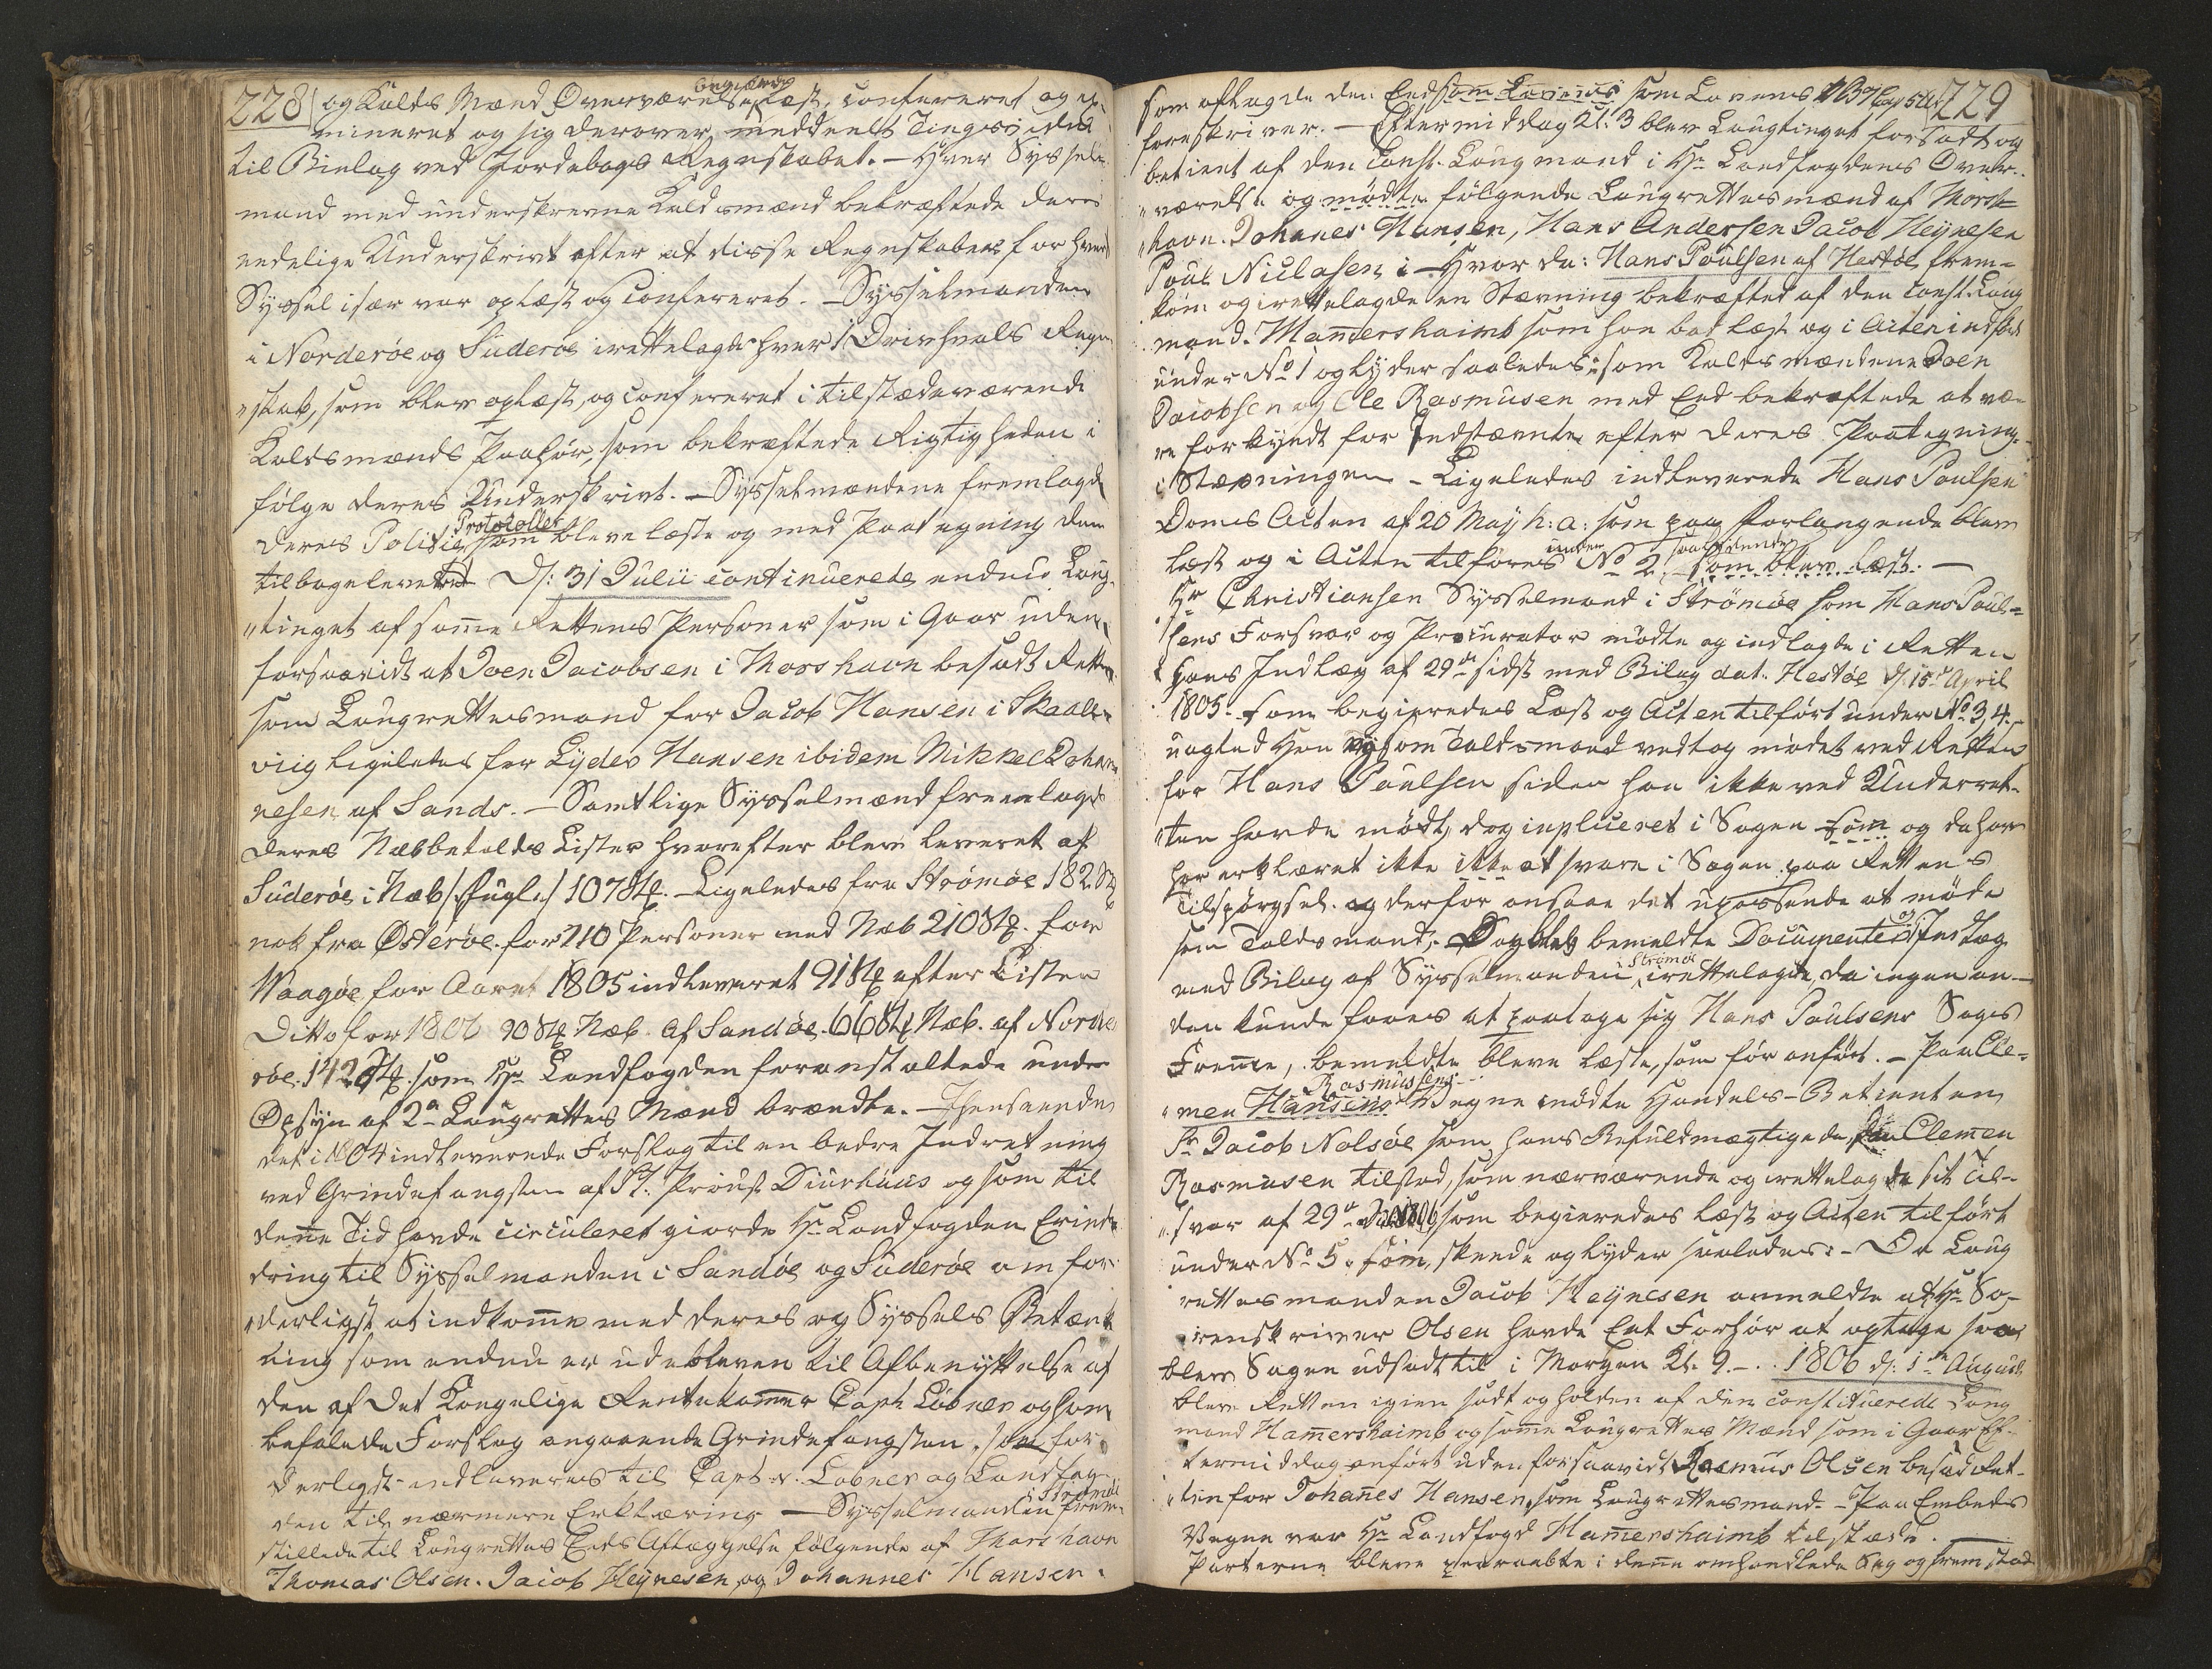 228
og Kalds Mænd Overværelse begiært læst, confereret og ex-
mineret og sig derover meddeelt Tingsvidne
til Bielag ved Jordebogs Regnskabet. — Hver Syssel-
mand med underskrevne Kaldsmænd bekræftede deres
endelige Underskrivt efter at disse Regnskaber for hver
Syssel især var oplæst og confereret. — Sysselmanden
i Norderøe og Suderøe irettelagde hver 1 Drivhvals Regn-
„skab, som blev oplæst, og confereret i tilstædeværende
Kaldsmænds Paahør, som bekræftede Rigtigheden i
følge deres Underskrivt. — Sysselmændene fremlagde
deres Politie Protocoller som bleve læste og med Paategning dem
tilbageleveret D: 31 Julii continuerede endnu Laug-
„tinget af samme Rettens Personer som i Gaar uden
forsaavidt at Joen Jacobsen i Thorshavn besadt Retten
som Laugrettesmand for Jacob Hansen i Skaale-
viig ligeledes for Lyder Hansen ibidem Mikkel Johan-
nesen af Sands. — Samtlige Sysselmænd fremlagde
deres Næbbetolds Lister hvorefter blev leveret af
Suderøe i Næb /: Fugle :/ 107 Stk. — Ligeledes fra Strømøe 182 Stk
nok fra Østerøe for 210 Personer ned Næb 210 Stk. for
Waagøe for Aaret 1805 indleveret 91 Stk efter Listen
Ditto for 1806 90 Stk Næb. af Sandøe. 66 Stk Næb. af Norde
røe. 142 Stk. som Hr Landfogden foranstaltede under
Opsyn af 2de Laugrettes Mænd brændte. — Henseende
det i 1804 indleverede Forslag til en bedre Indretning
ved Grindefangsten af Sr. Proust Diurhuus og som til
denne Tid havde circuleret giorde Hr Landfogden Erind-
dring til Sysselmanden i Sandøe og Suderøe om for-
„derligst at indkomme med deres og Syssels Betænk
ning som endnu er udebleven til Afbenyttelse af
den af Det Kongelige Rentekammer Capt: Løbner og ham
befalede Forslag angaaende Grindefangsten, som for-
derligst indleveres til Capt: v. Løbner og Landfog-
den til nærmere Erklæring — Sysselmanden i Strømøe frem-
stillede til Laugrettes Eeds Aflæggelse følgende af Thorshavn
Thomas Olsen. Jacob Heynesen og Johannes Hansen.
229
som aflagde den Eed som Lovens som Lovens 1 B 7 Cap 5 Art
foreskriver. — Eftermiddag Kl: 3 blev Laugtinget forsadt og
betient af den Const. Laugmand i Hr Landfogdens Over-
„værelse og mødte følgende Laugrettesmænd af Thors-
„havn. Johanes Hansen, Hans Andersen Jacob Heynesen
Poul Niclasen i — Hvor da: Hans Poulsen af Hestøe frem-
kom og irettelagde en Stævning bekræftet af den Const. Laug
mand. Hammershaimb som han bad læst og i Acten indført
under No 1 og lyder saaledes: som Kaldsmændene Joen
Jacobsen og Ole Rasmusen med Eed bekræftede at væ-
re forkyndt for Indstævnte efter deres Paategning
i Stævningen — Ligeledes indleverede Hans Poulsen
Doms Acten af 20 May h: a: som paa forlangende blev
læst og i Acten tilføres under No 2, saalydende som blev læst. —
Hr Christiansen Sysselmand i Strömöe som Hans Poul-
sens Forsvar og Procurator mødte og indlagde i Retten
hans Indlæg af 29de sidst med Bilag dat. Hestøe d. 15de April
1805. som begieredes Læst og Acten tilført under No 3, 4.
uagted Han ey som Taldsmand vedtog mødet ved Retten
for Hans Poulsen siden han ikke ved Underret-
„ten havde mødt, dog inpliceret i Sagen som og da han
har erklæret ikke ikke at svare i Sagen paa Rettens
Tilspørgsel. og derfor ansaae det upassende at møde
som Taldsmand,. Dog blev bemeldte Documenter og Indlæg
med Bilag af Sysselmanden Strømøe irettelagde, da ingen an-
den kunde faaes at paatage sig Hans Poulsens Sags
Fremme, bemeldte bleve læste, som før anført. — Paa Cle-
„men Hansens Rasmussens Vegne mødte Handels-Betienten
Sr Jacob Nolsøe som hans Befuldmægtigede, Clemen
Rasmusen tilstod, som nærværende og irettelagde sit Til-
„svar af 29de Julii 1806 som begieredes læst og Acten tilført
under No 5. som, skeede og lyder saaledes: — Da Laug
rettesmanden Jacob Heynesen anmeldte at Hr So-
renskriver Olsen havde Eet Forhør at optage saa
blev Sagen udsadt til i Morgen Kl. 9. — 1806 d: 1de August
blev Retten igien sadt og holden af den constituerede Laug
mand Hammershaimb og samme Laugrettes Mænd som i Gaar Ef-
termiddag anført uden forsaavidt Rasmus Olsen besad Ret-
„ten for Johanes Hansen, som Laugrettesmand. — Paa Embeds
Vegne var Hr Landfogd Hamershaimb tilstæde. —
Parterne bleve paaraabte i denne omhandlede Sag og fremstod